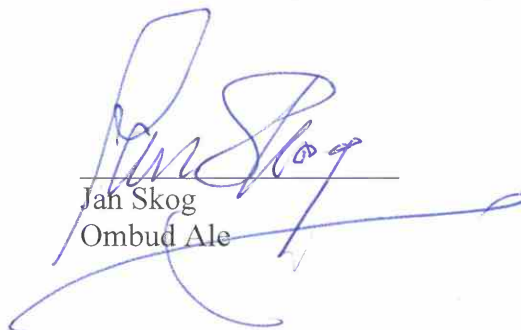 Jan Skog
Jan Skog
Ombud Ale